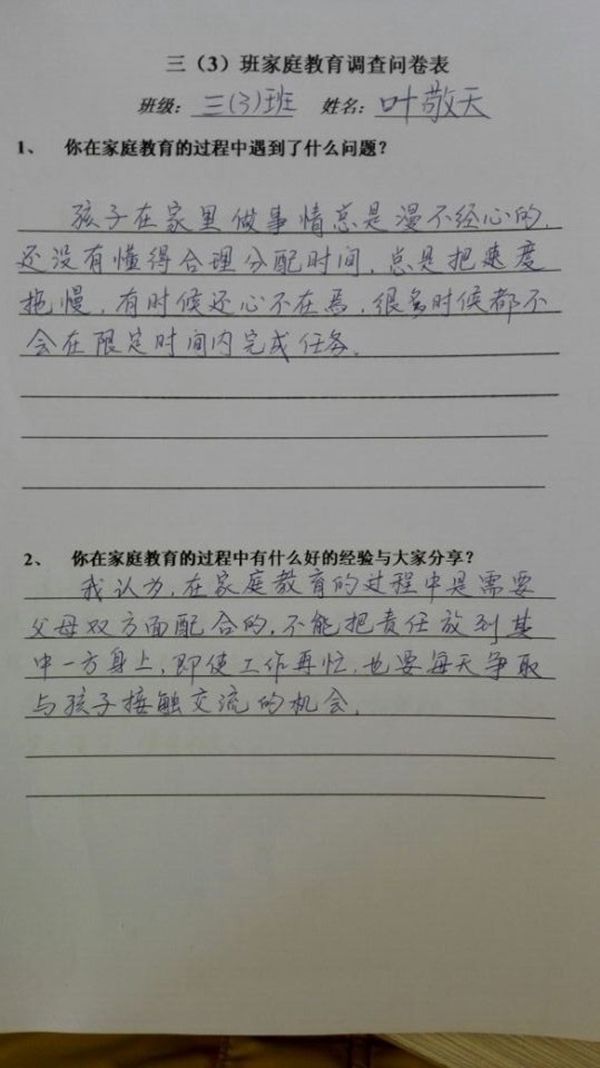 三（3）班家庭教育调查问卷表
班级：三(3)班 姓名：叶敬天
1、 你在家庭教育的过程中遇到了什么问题？
孩子在家里做事情总是漫不经心的，
还没有懂得合理分配时间，总是把速度
拖慢，有时候还心不在焉，很多时候都不
会在限定时间内完成任务。
2、 你在家庭教育的过程中有什么好的经验与大家分享？
我认为，在家庭教育的过程中是需要
父母双方面配合的，不能把责任放到其
中一方身上，即使工作再忙，也要每天争取
与孩子接触交流的机会。